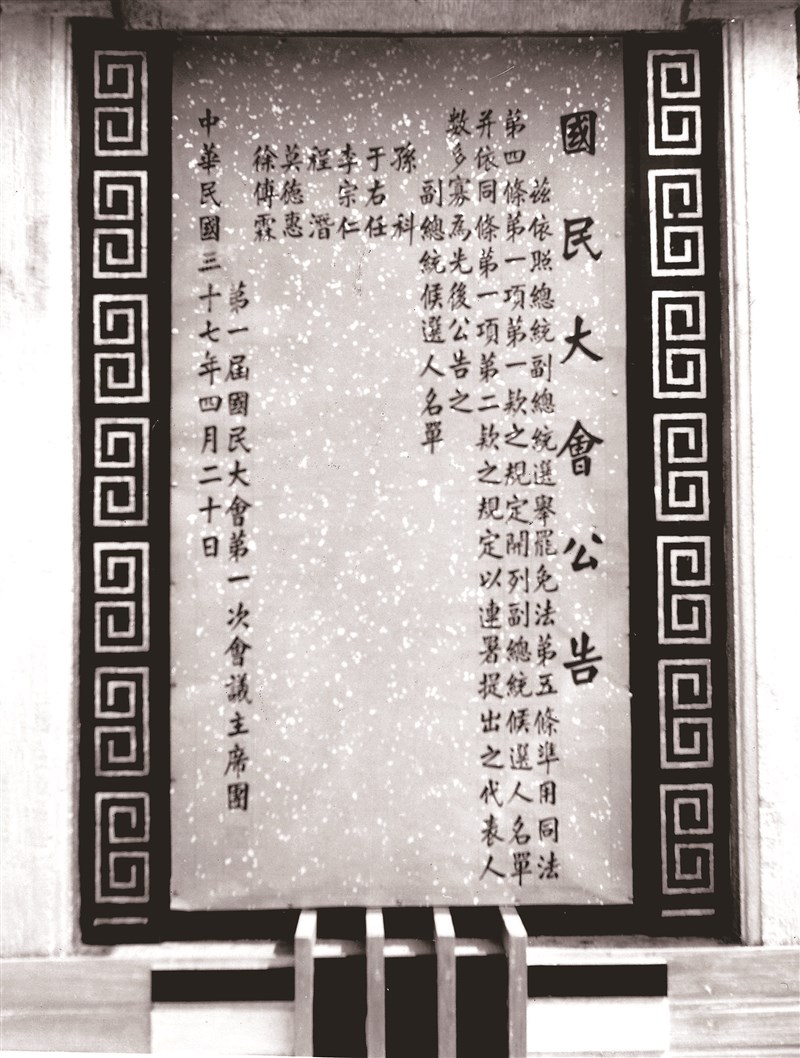 國民大會公告
茲依照總統副總統選舉罷免法第五條準用同法
第四條第一項第一款之規定開列副總統候選人名單
并依同條第一項第二款之規定以連署提出之代表人
數多寡為先後公告之
副總統候選人名單
孫科
于右任
李宗仁
程潛
莫德惠
徐傅霖
第一屆國民大會第一次會議主席團
中華民國三十七年四月二十日